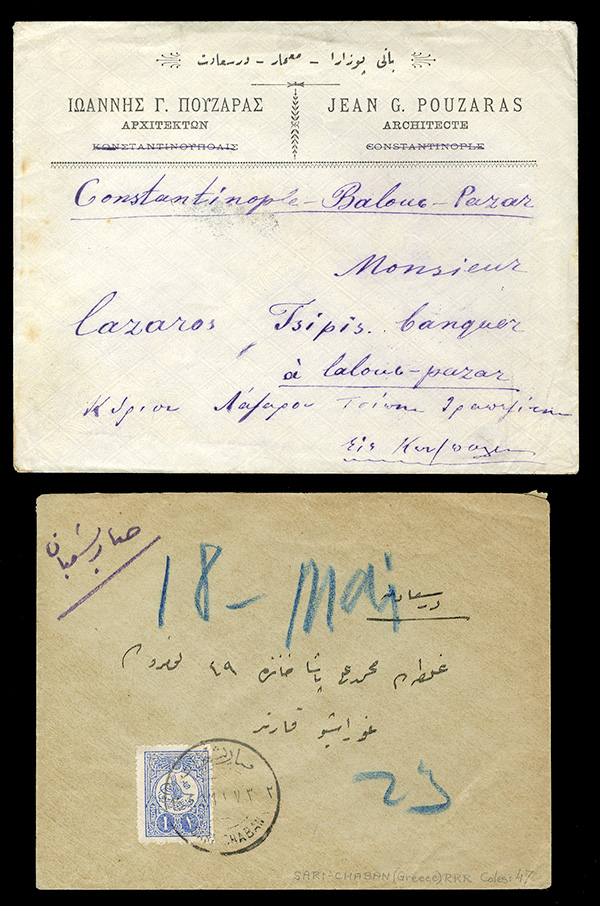 بانی پوزارا - معمار - درسعادت
ΙΩΑΝΝΗΣ Γ. ΠΟΥΖΑΡΑΣ
ΑΡΧΙΤΕΚΤΩΝ
ΚΩΝΣΤΑΝΤΙΝΟΥΠΟΛΙΣ
JEAN G. POUZARAS
ARCHITECTE
CONSTANTINOPLE
Constantinople - Balouc - Pazar
Monsieur
Lazaros Tsipis. banquer
à balouc-pazar
Κύριον Λάζαρον Τσίπην Τραπεζίτην
Εἰς
صاری شعبان
18 - Mai
درسعادت
غلطه ده محمد علی پاشا خاننده ٤٩ نومروده
23
1 ١
SARI CHABAN
SARI-CHABAN (Greece) RRR Coles: 47